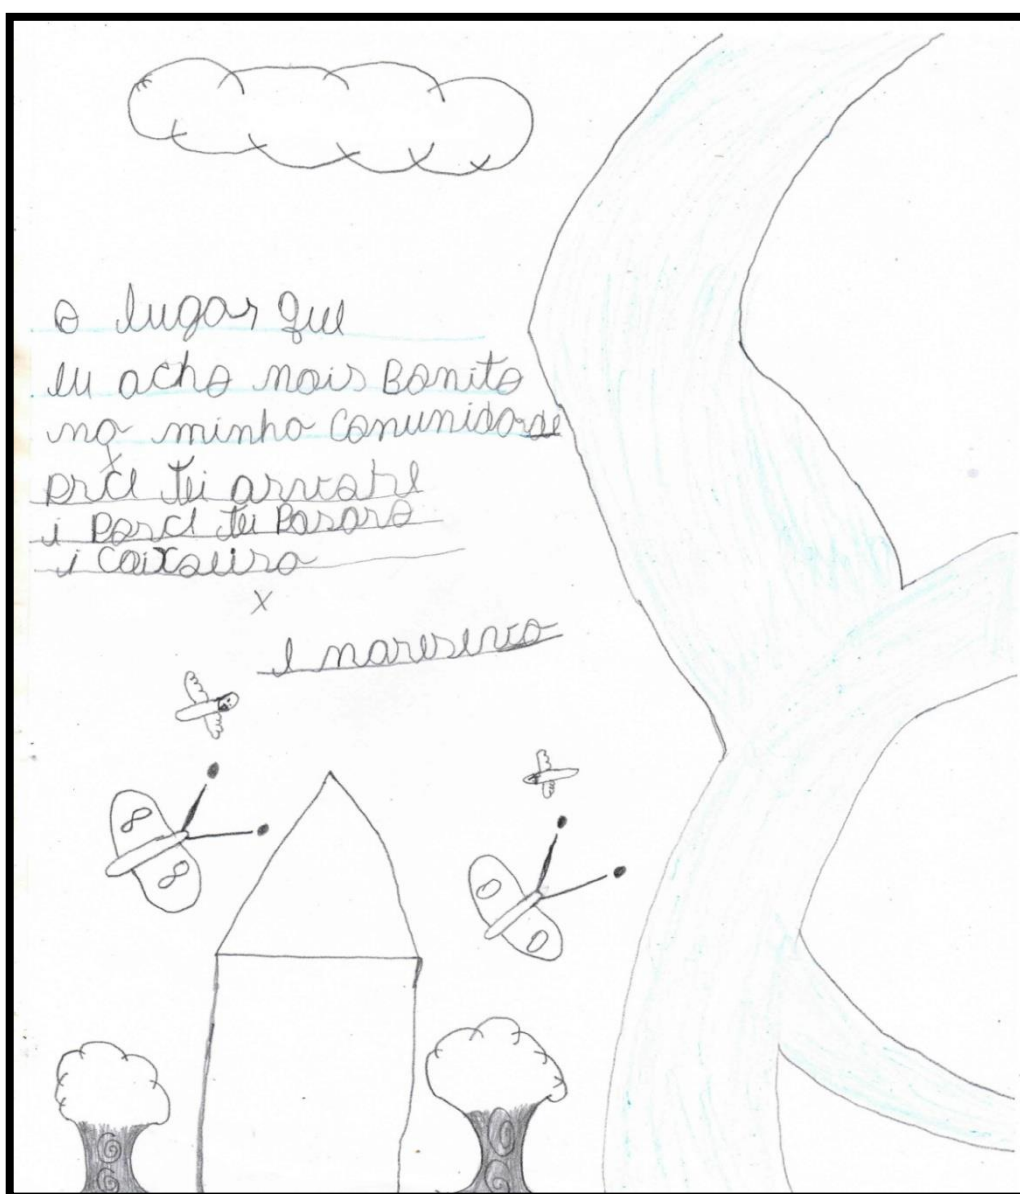 o lugar que
eu acho mais Bonito
na minha Comunidade
prcl tei arvore
i Porcl tei Pasaro
i Caixoeira
e naresenca